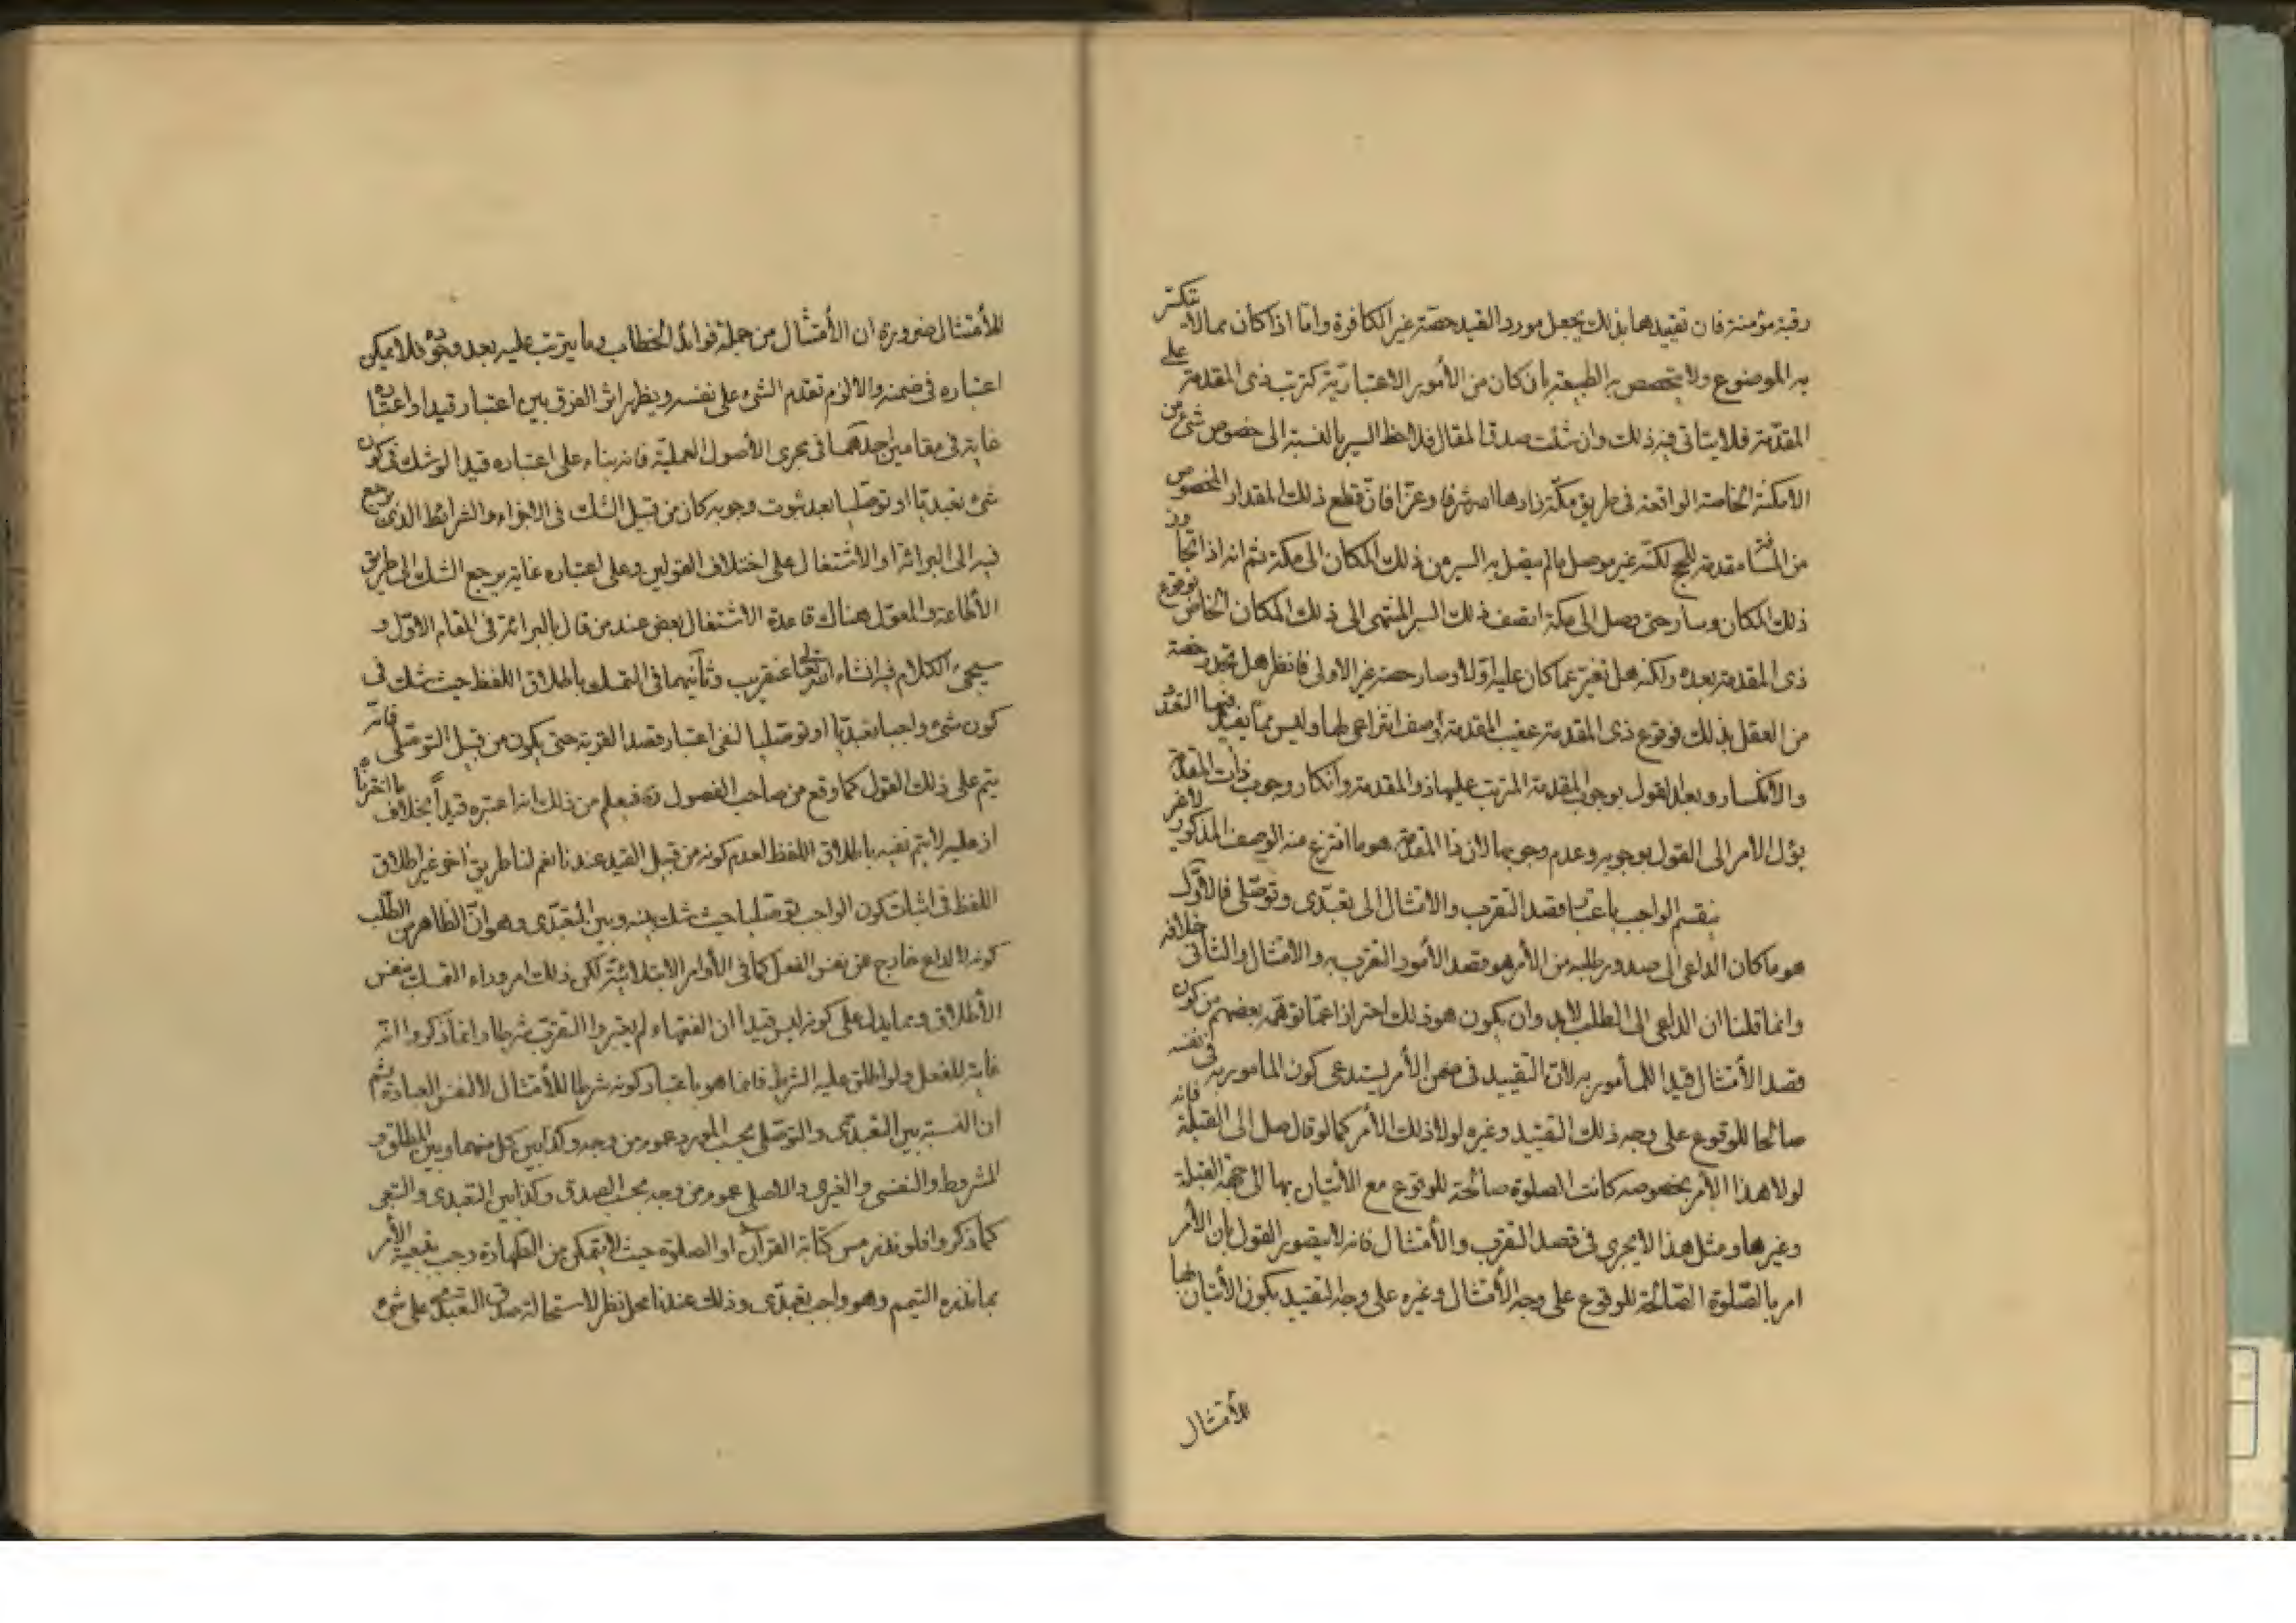 رقبة مؤمنة فان تقييدهما بذلك يجعل مورد القيد حصّة غير الكافرة وامّا اذا كان مما لا يتكثر
به الموضوع ولا يتحصص به الطبيعة بان كان من الأمور الاعتباريّة كترتب ذى المقدمة على
المقدّمة فلا يتاتى فيه ذلك وان شئت صدق المقال فلاحظ السير بالنسبة الى خصوص شئ من
الامكنة الخاصة الواقعة فى طريق مكّة زادها الله شرفا وعزّا فانّ قطع ذلك المقدار المخصوص
من المسافة مقدمة للحج لكنّه غير موصل ما لم يتصل به السير من ذلك المكان الى مكة ثم انه اذا تجاوز
ذلك المكان وسار حتى وصل الى مكة اتصف ذلك السير المنتهى الى ذلك المكان الخاص بوقوع
ذى المقدمة بعده ولكنه هل تغير عما كان عليه اوّلا وصار حصة غير الاولى فانظر هل تجدد حصة
من العقل بذلك فوقوع ذى المقدمة عقيب المقدمة وصف انتزاعى لها وليس ممّا يفيد فيها التعدّد
والانكسار وبعد القول بوجوب المقدمة المترتب عليها ذو المقدمة وانكار وجوب ذات المقدّمة
يؤل الامر الى القول بوجوبه وعدم وجوبها لان ذا المقدمة هو ما انتزع منه الوصف المذكور لا غير
ينقسم الواجب باعتبار قصد التقرب والامتثال الى تعبّدى وتوصّلى فالاوّل
هو ما كان الداعى الى صدور طلبه من الأمر هو قصد الأمور التقرب به والامتثال والثانى خلافه
وانما قلنا ان الداعى الى الطلب لابد وان يكون هو ذلك احترازا عمّا توهّمه بعضهم من كون
قصد الأمتثال قيدا للمأمور به لانّ التقييد فى ضمن الأمر يستدعى كون المامور به فى نفسه
صالحا للوقوع على وجه ذلك التقييد وغيره لولا ذلك الأمر كما لو قال صل الى القبلة فانه
لولا هذا الأمر بخصوصه كانت الصلوة صالحة للوقوع مع الأتيان بها الى جهة القبلة
وغيرها ومثل هذا لا يجرى فى قصد التقرب والأمتثال فانه لا يتصور القول بان الأمر
امر بالصّلوة الصّالحة للوقوع على وجه الأمتثال وغيره على وجه التقييد بكون الأتيان بها
للأمتثال
للأمتثال ضرورة ان الأمتثال من جملة فوائد الخطاب وما يترتب عليه بعد وجوده فلا يمكن
اعتباره فى ضمنه والا لزم تقدم الشئ على نفسه ويظهر اثر الفرق بين اعتباره قيدا واعتباره
غاية فى مقامين احدهما فى مجرى الأصول العمليّة فانه بناء على اعتباره قيدا لو شك فى كون
شئ تعبديّا او توصّليا بعد ثبوت وجوبه كان من قبيل الشك فى الاجزاء والشرائط الذى يرجع
فيه الى البرائة او الاشتغال على اختلاف القولين وعلى اعتباره غاية يرجع الشك الى طريق
الأطاعة والمعوّل هناك قاعدة الاشتغال بعض عند من قال بالبرائة فى المقام الاوّل و
سيجئ الكلام فيه انشاء الله تعالى عنقريب وثانيهما فى التمسك باطلاق اللفظ حيث شك فى
كون شئ واجبا تعبديّا او توصّليا لنفى اعتبار قصد القربة حتى يكون من قبيل التوصّلى فانه
يتم على ذلك القول كما وقع من صاحب الفصول ره فيعلم من ذلك انه اعتبره قيداً بخلاف ما اخترناه
اذ عليه لا يتم نفيه باطلاق اللفظ لعدم كونه من قبيل القيد عندنا نعم لنا طريق اخر غير اطلاق
اللفظ فى اثبات كون الواجب توصّليا حيث شك بينه وبين التعبّدى وهو انّ الظاهر من الطلب
كونه لا لداع خارج عن نفس الفعل كما فى الأوامر الابتدائيّة لكن ذلك امر وراء التمسك بنفس
الأطلاق ومما يدل على كونه ليس قيدا ان الفقهاء لم يعتبروا التقرّب شرطا وانما ذكروا انّه
غاية للفعل ولو اطلق عليه الشرط فانما هو باعتبار كونه شرطا للأمتثال لا لنفس العبادة ثم
ان النسبة بين التعبدّى والتوصّلى بحسب المورد عموم من وجه وكذا بين كل منهما وبين المطلق و
المشروط والنفسى والغيرى والاصلى عموم من وجه بحسب الصدق وكذا بين التعبدى والتبعى
كما ذكروا فلو نذر مس كتابة القرآن او الصلوة حيث لا يتمكن من الطهارة وجب بتبعية الأمر
بما نذره التيمم وهو واجب تعبّدى وذلك عندنا محل نظر لاستحالة صدق التعبّدى على شئ